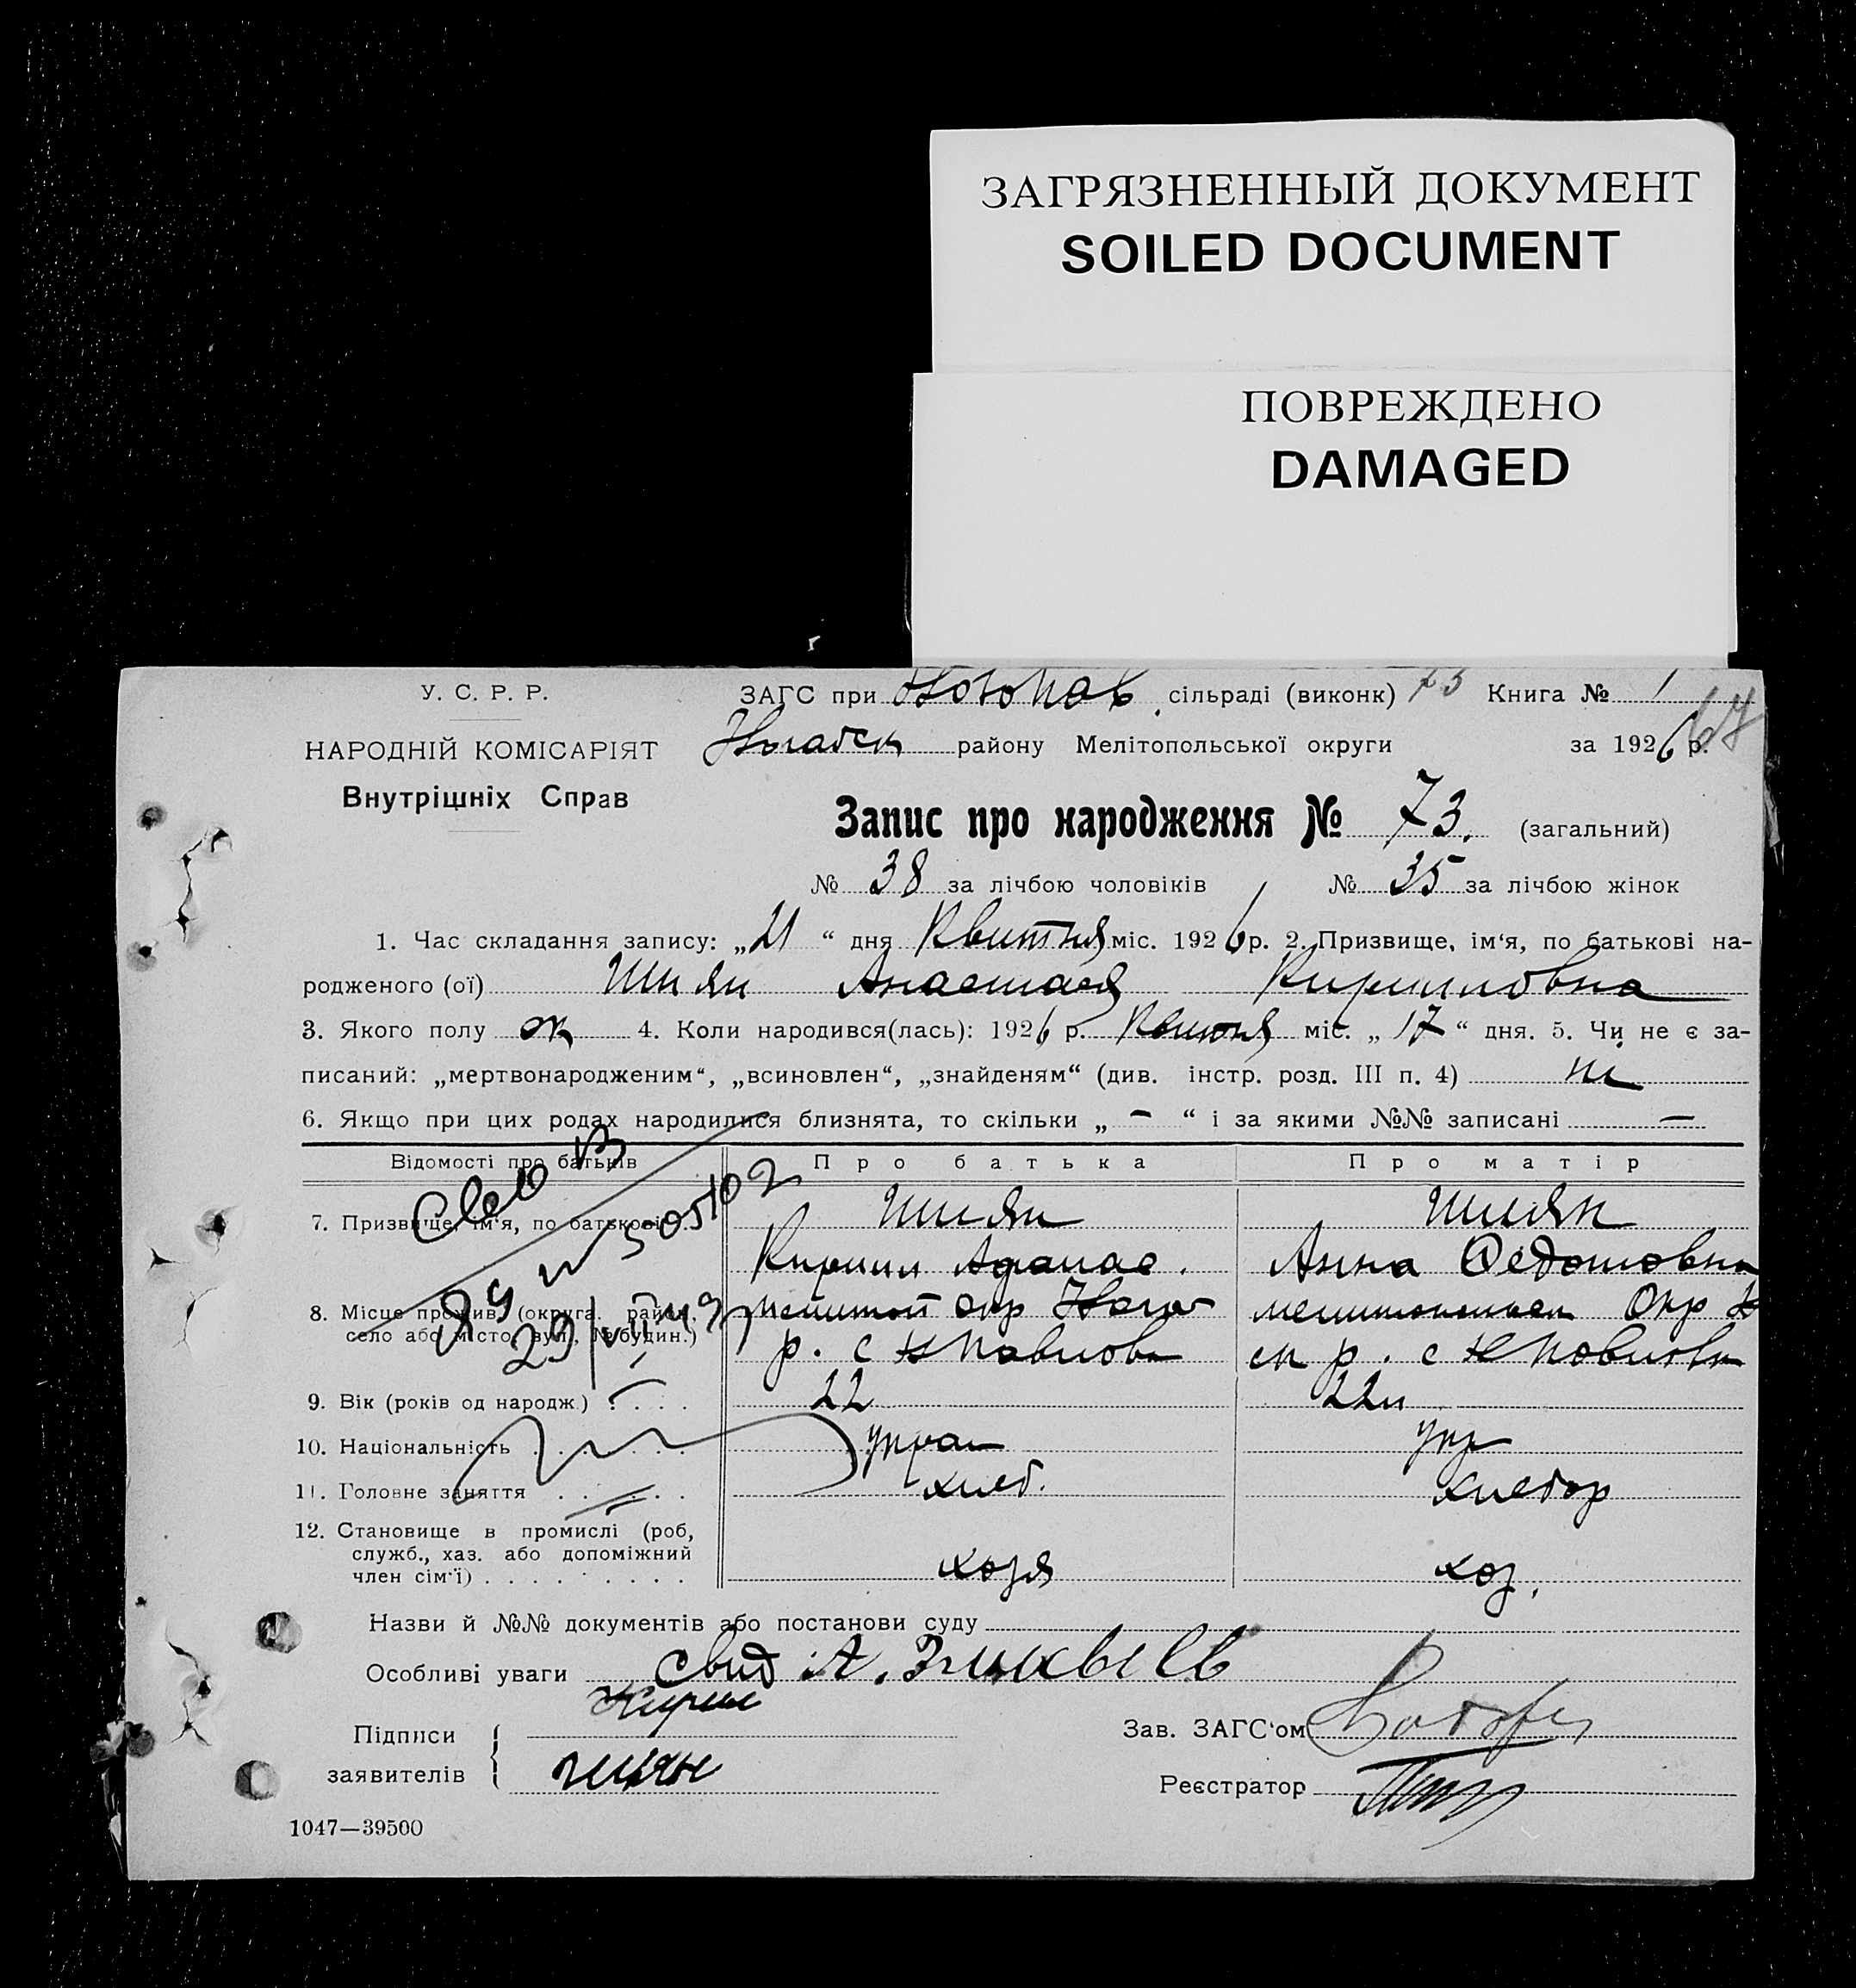 ЗАГРЯЗНЕННЫЙ ДОКУМЕНТ
SOILED DOCUMENT
ПОВРЕЖДЕНО
DAMAGED
У. С. Р. Р.
НАРОДНІЙ КОМІСАРІЯТ
Внутрішніх Справ
ЗАГС при Новопав. сільраді (виконк) 73 Книга № 1
67
району Мелітопольської округи за 1926 р.
Запис про народження № 73. (загальний)
№ 38 за лічбою чоловіків № 35 за лічбою жінок
1. Час складання запису: „21 “ дня Квитня міс. 1926 р. 2. Призвище, ім‘я, по батькові на-
родженого (ої) Шиян Анастася Кирилловна
3. Якого полу ж 4. Коли народився(лась): 1926 р. Квитня міс. „ 17 “ дня. 5. Чи не є за-
писаний: „мертвонародженим“, „всиновлен“, „знайденям“ (див. інстр. розд. III п. 4) ні
6. Якщо при цих родах народилися близнята, то скільки „ – “ і за якими №№ записані —
Відомості про батьків Про батька Про матір
7. Призвище, ім‘я, по батькові Шиян Шиян
Кирилл Афанас. Анна Федотовна
8. Місце прожив. (округа, район, село або місто, вул., № будин.)
мелитоп окр Ногай мелитопольськ Окр Н
р. с Н Павловк ск р. с Н Павловк
9. Вік (років од народж.) 22 22
10. Національність украи укр
11. Головне заняття хлеб. хлебор
12. Становище в промислі (роб, служб., хаз. або допоміжний член сім‘ї) хозя хоз.
Назви й №№ документів або постанови суду
Особливі уваги
Підписи Кирил
заявителів Шиян
Зав. ЗАГС‘ом
Реєстратор
1047—39500